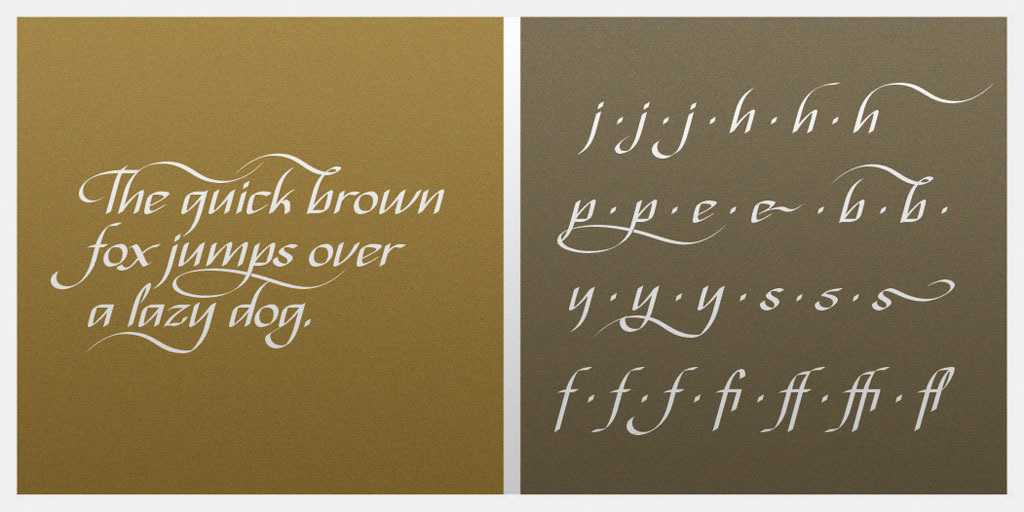 The quick brown
fox jumps over
a lazy dog.
j · j · j · h · h · h
p · p · e · e · b · b ·
y · y · y · s · s · s
f · f · f · fi · ff · ffi · fl